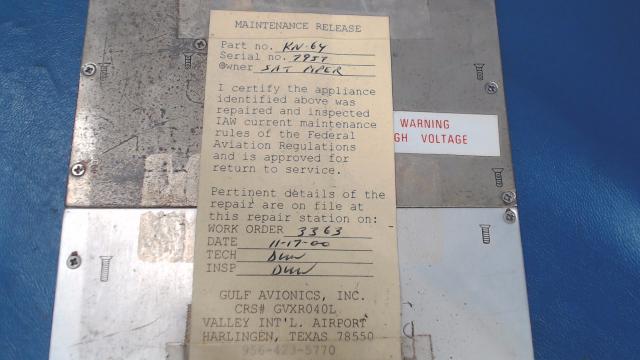 MAINTENANCE RELEASE
Part no. KN-64
Serial no. 7957
Owner SAT PIPER
I certify the appliance
identified above was
repaired and inspected
IAW current maintenance
rules of the Federal
Aviation Regulations
and is approved for
return to service.
Pertinent details of the
repair are on file at
this repair station on:
WORK ORDER 3363
DATE 11-17-00
TECH
INSP
GULF AVIONICS, INC.
CRS# GVXR040L
VALLEY INT'L. AIRPORT
HARLINGEN, TEXAS 78550
956-423-5770
WARNING
GH VOLTAGE